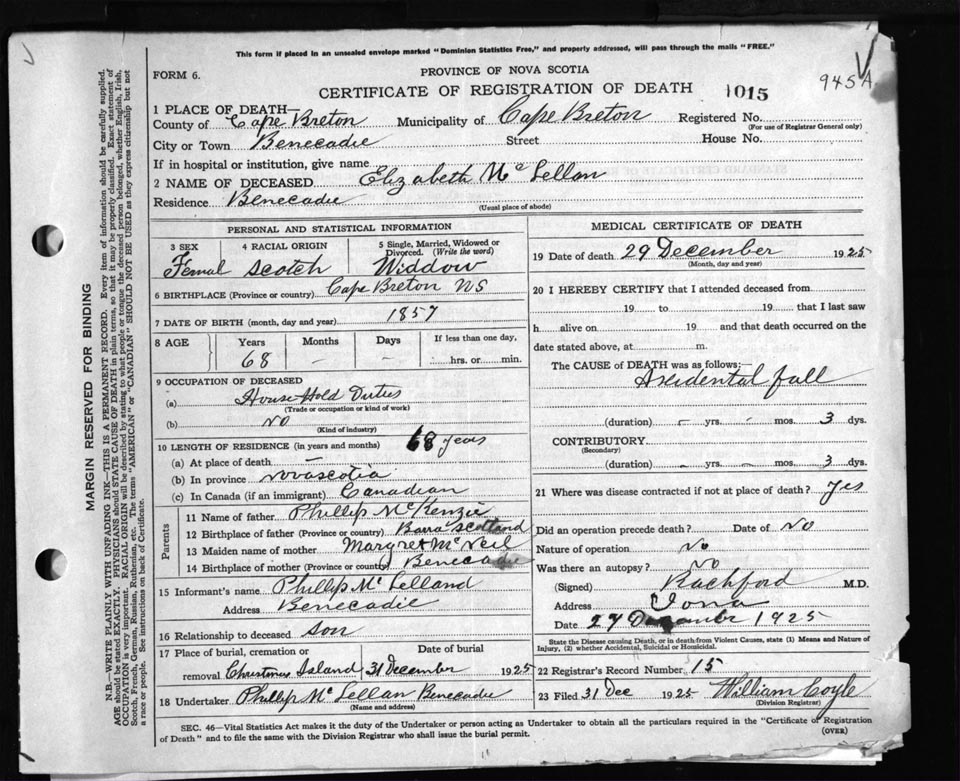 This form if placed in an unsealed envelope marked "Dominion Statistics Free," and properly addressed, will pass through the mails "FREE."
FORM 6. PROVINCE OF NOVA SCOTIA 945A
CERTIFICATE OF REGISTRATION OF DEATH 1015
1 PLACE OF DEATH—
County of Cape Breton Municipality of Cape Breton Registered No.
(For use of Registrar General only)
City or Town Benecadie Street House No.
If in hospital or institution, give name
2 NAME OF DECEASED Elizabeth Mc Lellan
Residence Benecadie
(Usual place of abode)
PERSONAL AND STATISTICAL INFORMATION
3 SEX 4 RACIAL ORIGIN 5 Single, Married, Widowed or Divorced. (Write the word)
Femal Scotch Widdow
6 BIRTHPLACE (Province or country) Cape Breton NS
7 DATE OF BIRTH (month, day and year) 1857
8 AGE Years Months Days If less than one day,
68 – – hrs. or min.
9 OCCUPATION OF DECEASED
(a) House Hold Duties
(Trade or occupation or kind of work)
(b) No
(Kind of industry)
10 LENGTH OF RESIDENCE (in years and months) 68 years
(a) At place of death –
(b) In province novascotia
(c) In Canada (if an immigrant) Canadian
Parents
11 Name of father Phillip McKenzie
12 Birthplace of father (Province or country) Barra Scotland
13 Maiden name of mother Margret McNeil
14 Birthplace of mother (Province or country) Benecadie
15 Informant's name Phillip Mc Lelland
Address Benecadie
16 Relationship to deceased son
17 Place of burial, cremation or removal Christmas Island Date of burial 31 December 1925
18 Undertaker Phillip Mc Lellan Benecadie
(Name and address)
MEDICAL CERTIFICATE OF DEATH
19 Date of death 29 December 1925
(Month, day and year)
20 I HEREBY CERTIFY that I attended deceased from
19 to 19 that I last saw
h alive on 19 and that death occurred on
date stated above, at m.
The CAUSE of DEATH was as follows:—
Axidental fall
(duration) – yrs. – mos. 3 dys.
CONTRIBUTORY
(Secondary)
(duration) – yrs. – mos. 3 dys.
21 Where was disease contracted if not at place of death? yes
Did an operation precede death? Date of No
Nature of operation No
Was there an autopsy? No
(Signed) Rachford M.D.
Address Iona
Date 29 December 1925
State the Disease causing Death, or in death from Violent Causes, state (1) Means and Nature of
Injury, (2) whether Accidental, Suicidal or Homicidal.
22 Registrar's Record Number 15
23 Filed 31 Dec 1925 William Coyle
(Division Registrar)
SEC. 46—Vital Statistics Act makes it the duty of the Undertaker or person acting as Undertaker to obtain all the particulars required in the "Certificate of Registration
of Death" and to file the same with the Division Registrar who shall issue the burial permit.
(OVER)
MARGIN RESERVED FOR BINDING
N.B.—WRITE PLAINLY WITH UNFADING INK—THIS IS A PERMANENT RECORD. Every item of information should be carefully supplied.
AGE should be stated EXACTLY. PHYSICIANS should STATE CAUSE OF DEATH in plain terms, so that it may be properly classified. Exact statement of
OCCUPATION is very important. RACIAL ORIGIN will be described by stating to what people or tongue the deceased person belonged, whether English, Irish,
Scotch, French, German, Russian, Ruthenian, etc. The terms "AMERICAN" or "CANADIAN" SHOULD NOT BE USED as they express citizenship but not
a race or people. See instructions on back of Certificate.